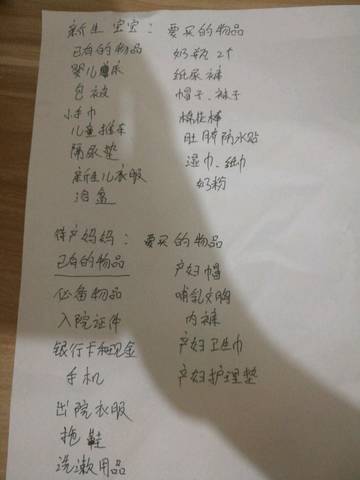 新生宝宝：要买的物品
已有的物品 奶瓶2个
婴儿床 纸尿裤
包被 帽子、袜子
小毛巾 棉花棒
儿童推车 肚脐隔水贴
隔尿垫 湿巾、纸巾
新生儿衣服 奶粉
浴盆
待产妈妈：要买的物品
已有的物品 产妇帽
必备物品 哺乳文胸
入院证件 内裤
银行卡和现金 产妇卫生巾
手机 产妇护理垫
出院衣服
拖鞋
洗漱用品